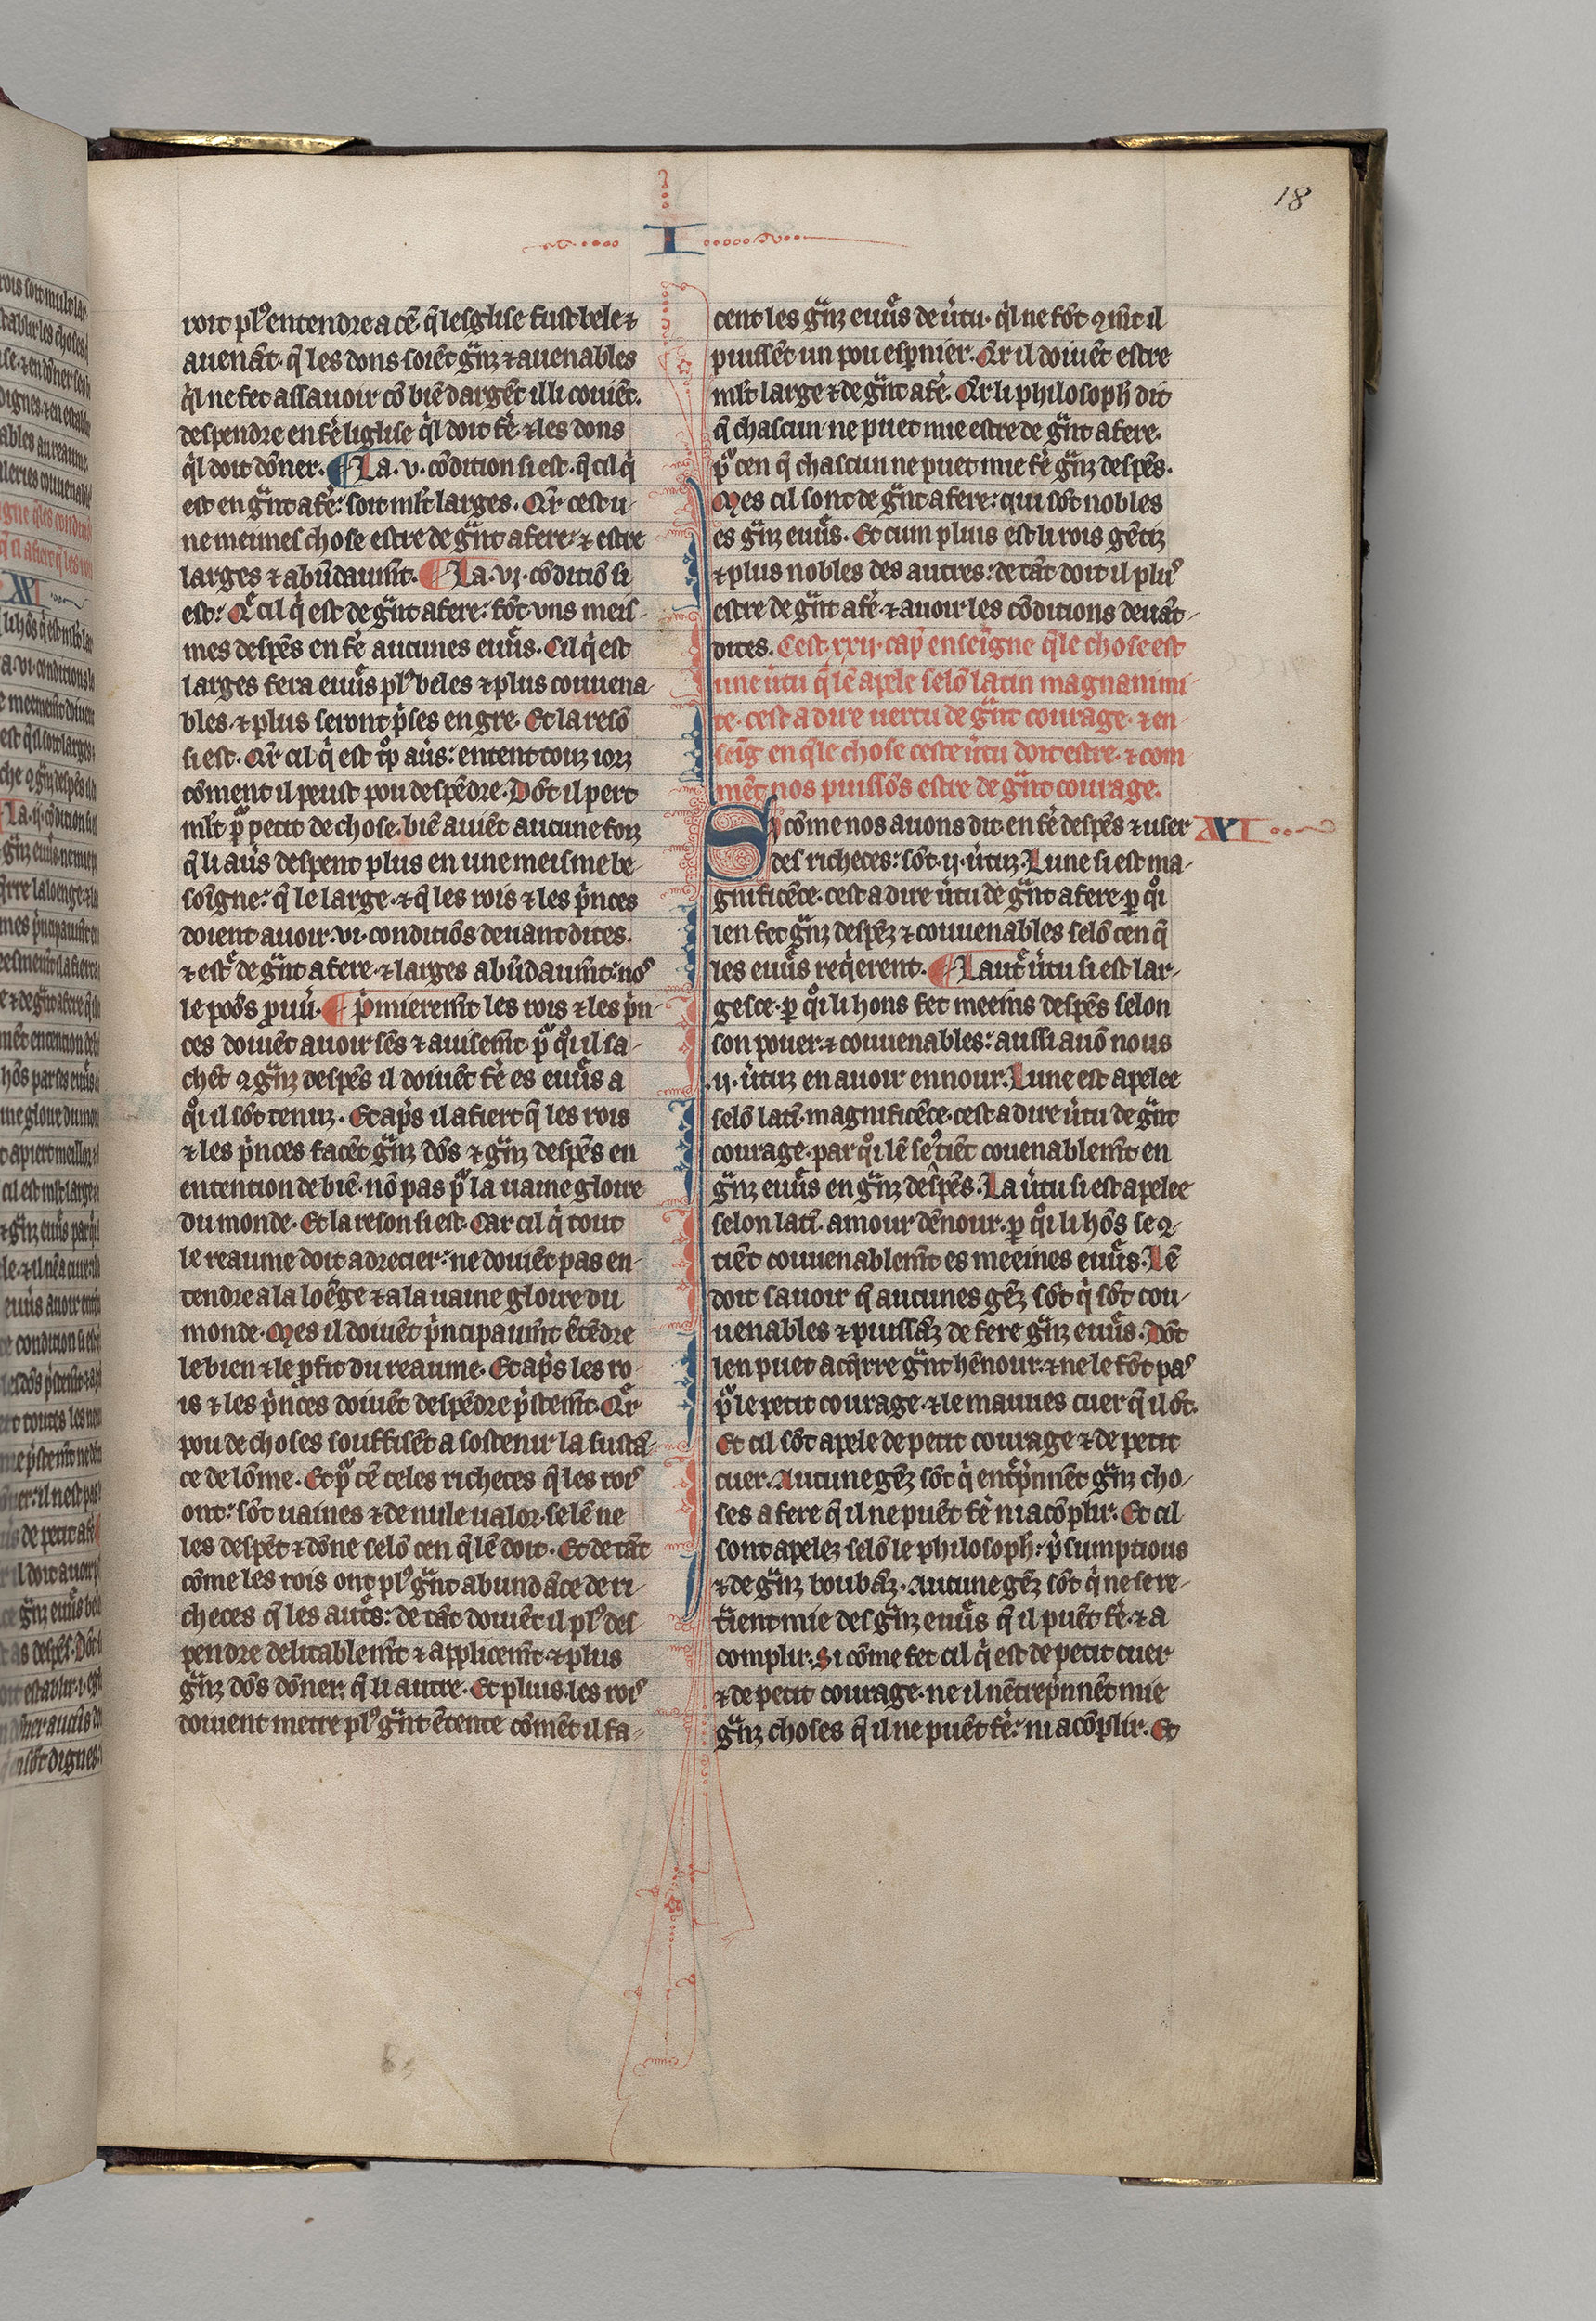 18
I
roit plꝰ entendre a cē. q̄ lesglise fust bele ⁊
auenāt. q̄ les dons soiēt gͣnz ⁊ auenables
qͥl ne fet assauoir cō biē dargēt illi couiēt.
despendre en fe᷑ liglise qͥl doit fe᷑. ⁊ les dons
qͥl doit dōner. ¶ La .v. cōdition si est. q̄ cil qͥ
est en gͣnt afe᷑: soit ml̄t larges. Qͣr cest u-
ne meimes chose estre de gͣnt afere: ⁊ estre
larges ⁊ abūdaum̄t. ¶ La .vj. cōditiō si
est: Q̄ cil qͥ est de gͣnt afere: fōt vns meis-
mes despēs en fe᷑ aucunes euur̄s. Cil qͥ est
larges fera euur̄s plꝰ beles ⁊ plus couuena-
bles. ⁊ plus seront pͥses en gre. Et la resō
si est. Qͣr cil qͥ est tͦp au᷑s: entent touz iorz
cōment il peust pou despēdre. Dōt il pert
ml̄t pͦ petit de chose. biē auiēt aucune foiz
q̄ li au᷑s despent plus en une meisme be-
soigne: q̄ le large. ⁊ q̄ les rois ⁊ les pͥnces
doient auoir .vi. conditiōs deuant dites.
⁊ estᷣ de gͣnt afere. ⁊ larges abūdaum̄t: noꝰ
le poōs ꝓuu᷑. ¶ pͥmierem̄t les rois ⁊ les pͥn-
ces doiuēt auoir sēs ⁊ auisem̄t. pͦ qͦi il sa-
chēt ꝯ gͣnz despēs il doiuēt fe᷑ es euur̄s a
qͦi il sōt tenuz. Et ap᷑s il afiert q̄ les rois
⁊ les pͥnces facēt gͣnz dōs ⁊ gͣnz despēs en
entention de biē. nō pas pͦ la uaine gloire
du monde. Et la reson si est. Car cil qͥ tout
le reaume doit adrecier: ne doiuēt pas en-
tendre a la loēge ⁊ a la uaine gloire du
monde. Mes il doiuēt pͥncipaum̄t ētēdre
le bien ⁊ le ꝓfit du reaume. Et ap᷑s les ro-
is ⁊ les pͥnces doiuēt despēdre pͥstem̄t. Qͣr
pou de choses souffisēt a sostenir la sustā-
ce de lōme. Et pͦ cē celes richeces q̄ les roiꝰ
ont: sōt uaines ⁊ de nule ualor. se lē ne
les despēt ⁊ dōne selō cen q̄ lē doit. Et de tāt
cōme les rois ont plꝰ gͣnt abundāce de ri-
checes q̄ les autͤs: de tāt doiuēt il plꝰ des-
pendre delitablem̄t ⁊ applicem̄t. ⁊ plus
gͣnz dōs dōner: q̄ li autre. Et pluis. les roiꝰ
doiuent metre plꝰ gͣnt ētente cōmēt il fa-
cent les gͣnz euur̄s de u᷑tu. qͥl ne fōt ꝯm̄t il
puissēt un pou esꝑnier. Qͣr il doiuēt estre
ml̄t large ⁊ de gͣnt afe᷑. Qͣr li philosoph̄ dit
q̄ chascun ne puet mie estre de gͣnt afere.
pͦ cen q̄ chascun ne puet mie fe᷑ gͣnz despēs.
Mes cil sont de gͣnt afere: qui sōt nobles
es gͣnz euur̄s. Et cun pluis est li rois gētiz
⁊ plus nobles des autres: de tāt doit il pluꝰ
estre de gͣnt afe᷑ ⁊ auoir les cōditions deuāt-
dites. Cest .xxij. cap̄ enseigne q̄le chose est
une u᷑tu q̄ lē apele selō latin magnanimi-
te. cest a dire uertu de gͣnt courage. ⁊ en-
seiḡ en q̄le chose ceste u᷑tu doit estre. ⁊ com-
mēt nos puissōs estre de gͣnt courage.
Si cōme nos auons dit. en fe᷑ despēs ⁊ user XXI
des richeces: sōt .ij. u᷑tuz. Lune si est ma-
gnificēce. cest a dire u᷑tu de gͣnt afere. ꝑ qͦi
len fet gͣnz despēz ⁊ couuenables selō cen q̄
les euur̄s reqͥerent. ¶ Lautͤ u᷑tu si est lar-
gesce. ꝑ qͦi li hons fet meeins despēs selon
son pouer. ⁊ couuenables: aussi auō nous
.ij. u᷑tuz en auoir ennour. Lune est apelee
selō latī. magnificēce. cest a dire u᷑tu de gͣnt
courage. par qͦi lē se ꝯtiēt couenablem̄t en
gͣnz euur̄s en gͣnz despēs. La u᷑tu si est apelee
selon latī. amour dēnour. ꝑ qͦi li hōs se ꝯ-
tiēt couuenablem̄t es meeines euur̄s. Lē
doit sauoir q̄ aucunes gēz sōt qͥ sōt cou-
uenables ⁊ puissāz de fere gͣnz euur̄s. Dōt
len puet acq̄rre gͣnt hēnour. ⁊ ne le fōt paꝰ
pͦ le petit courage. ⁊ le mauues cuer q̄ il ōt.
Et cil sōt apele de petit courage ⁊ de petit
cuer. Aucune gēz sōt qͥ entͤpͥnnēt gͣnz cho-
ses a fere q̄ il ne puēt fe᷑ ni acōplir. Et cil
sont apelez selō le philosoph̄: pͥsumptious
⁊ de gͣnz boubāz. Aucune gēz sōt qͥ ne se re-
tͥient mie des gͣnz euur̄s q̄ il puēt fe᷑. ⁊ a
complir. Si cōme fet cil qͥ est de petit cuer
⁊ de petit courage. ne il nētrepͥnnēt mie
gͣnz choses q̄ il ne puēt fe᷑: ni acōplir. Et